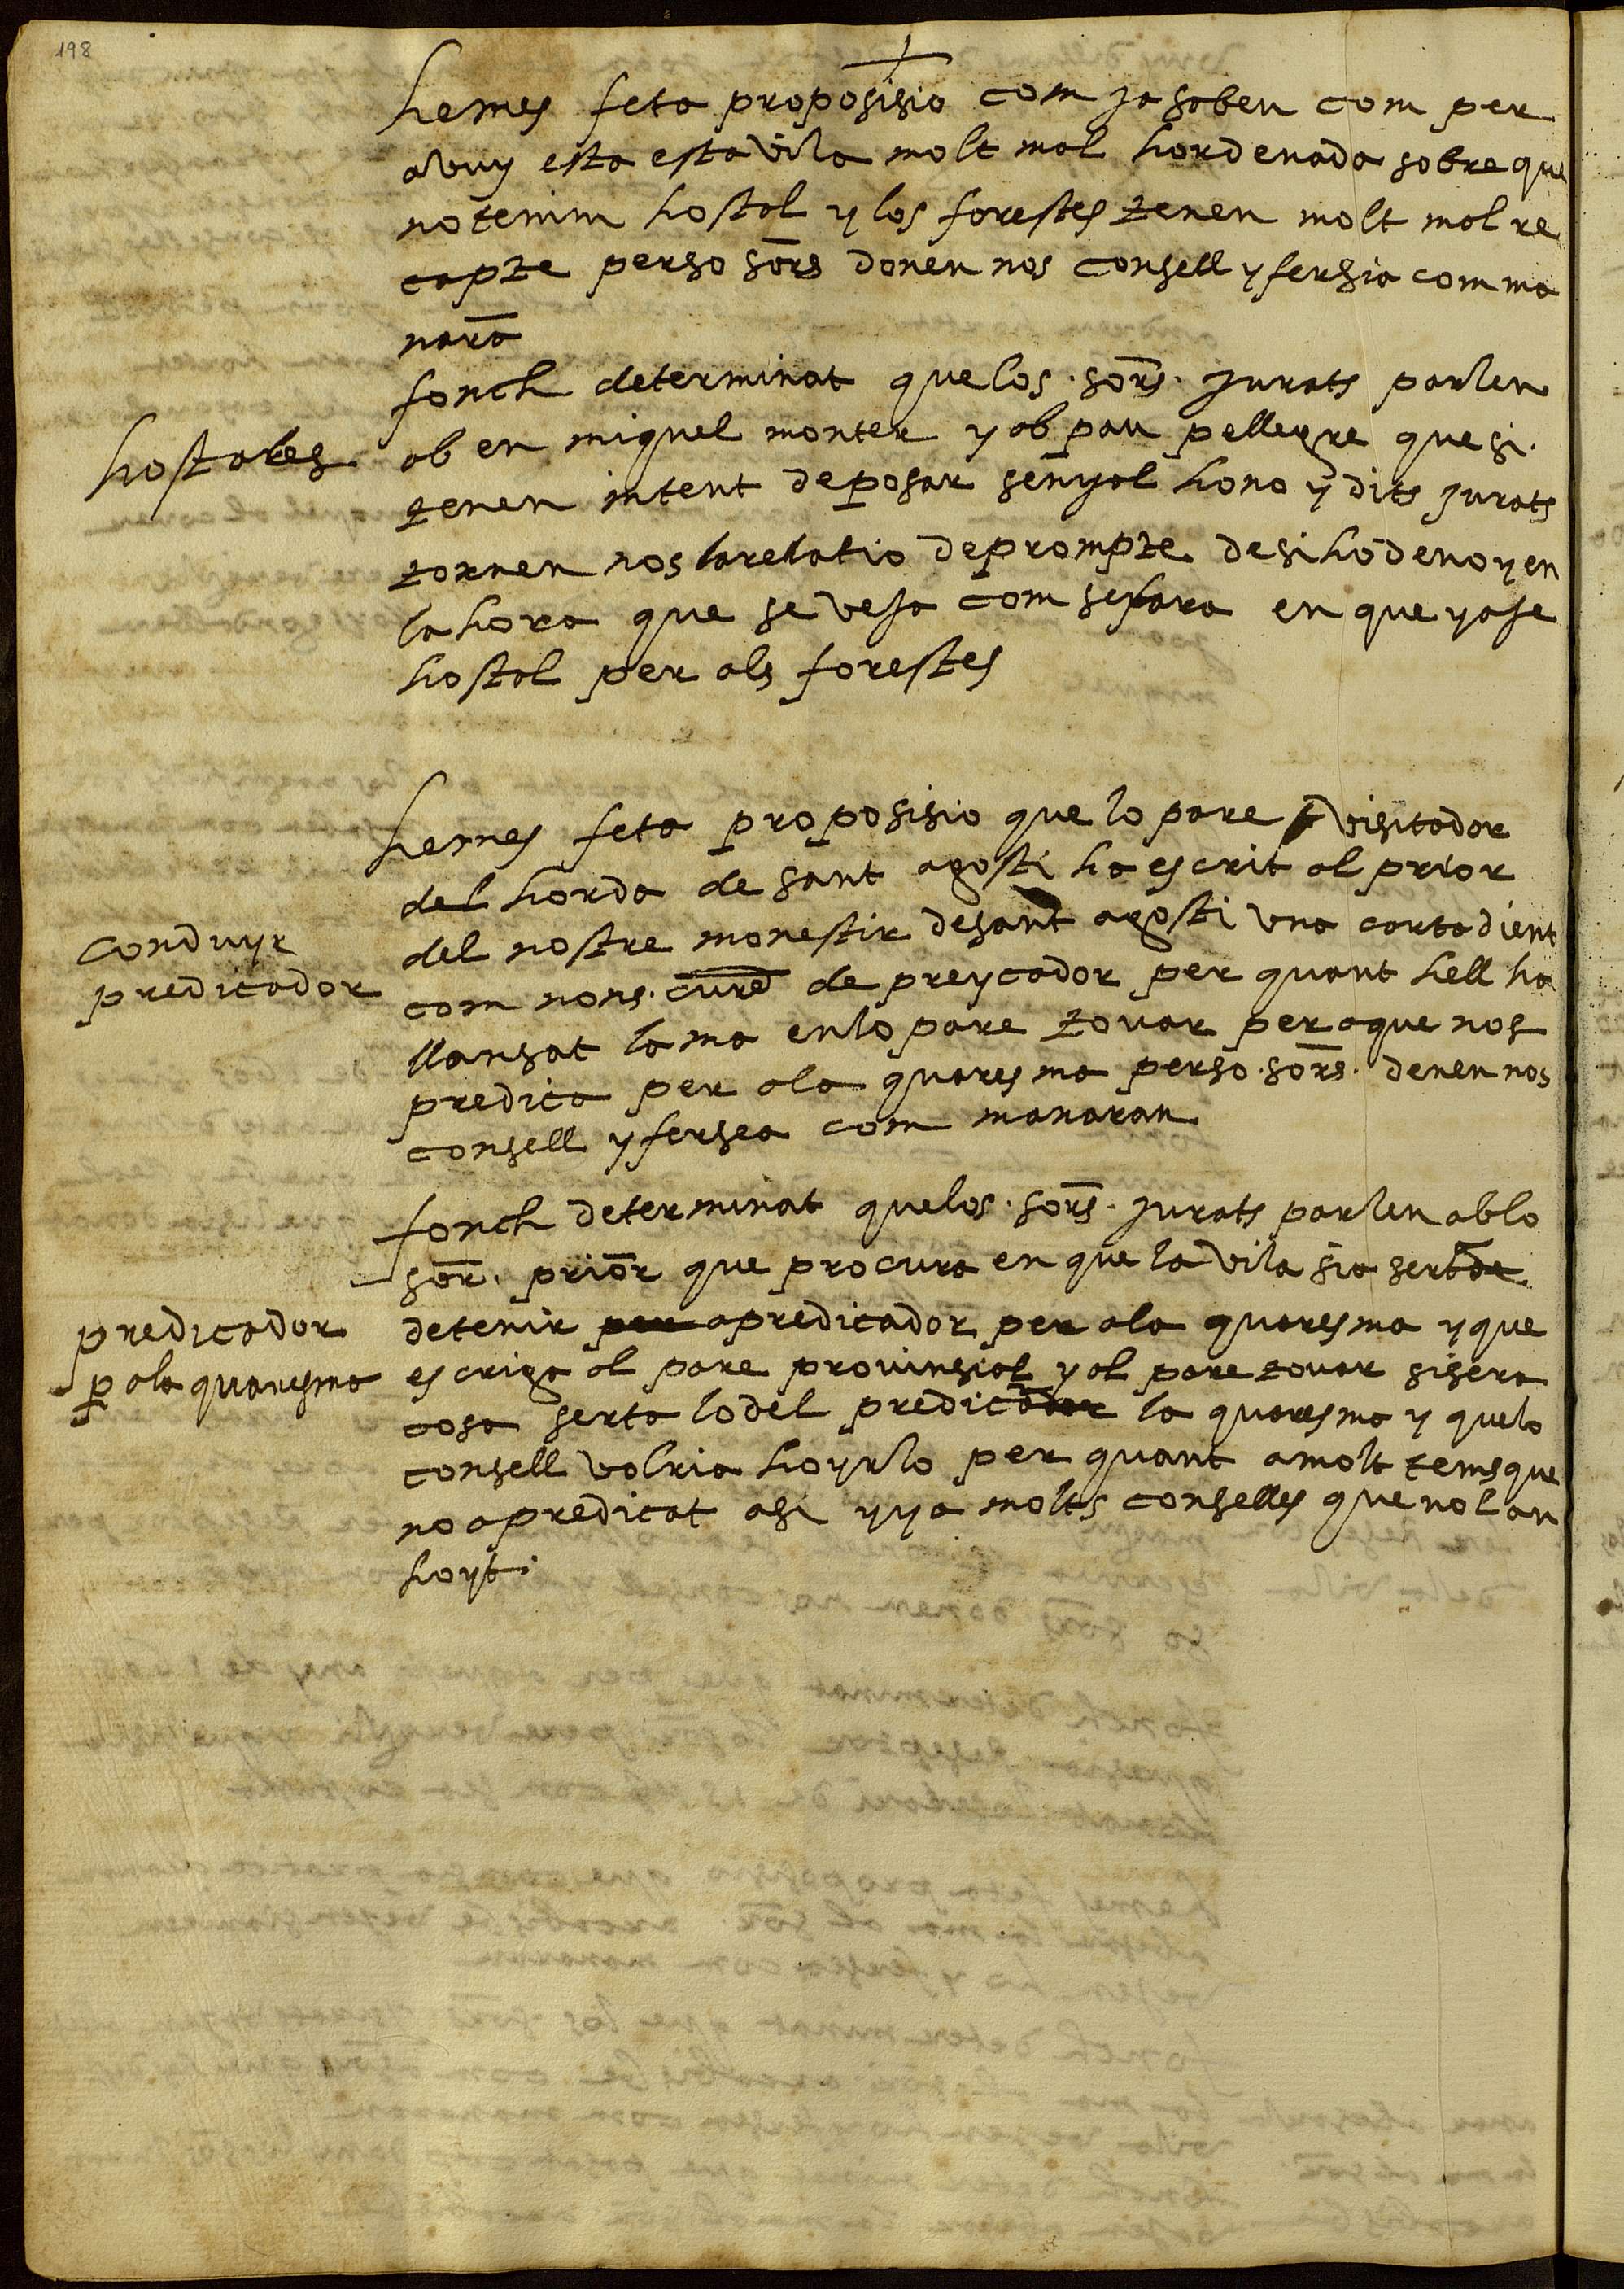 198
hemes feta proposisio com ja saben com per
avuy esta esta vila molt mal hordenada sobre que
no tenim hostal y los forestes tenen molt mal re
capte perso sors donen nos consell y fersia com ma
nara
hostales
fonch determinat que los sors jurats parlen
ab en miquel monter y ab pau pellegre que si
tenen intent de posar senyal ho no y dits jurats
tornen nos la relatio de prompte de si ho de no y en
la hora que se veja com se fara en que yaje
hostal per als forestes
hemes feta proposisio que lo pare visitador
del horda de sant agosti ha escrit al prior
conduyr
predicador
del nostre monestir de sant agosti una carta dient
com nons curē de preycador per quant hell ha
llansat la ma en lo pare tovar per a que nos
predica per a la quaresma perso sors denen nos
consell y fersea com manaran
fonch determinat que los sors jurats parlen ab lo
sor prior que procura en que la vila sia serta
predicador
p a la quaresma
de tenir a predicador per a la quaresma y que
escriga al pare provinsial y al pare tovar si sera
cosa serta lo del predicar la quaresma y que lo
consell volria hoyrlo per quant a molt tems que
no a predicat asi y ya molts conselles que nol an
hoyt